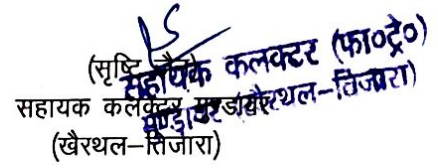 (सृष्टि जैन)
सहायक कलक्टर मुण्डावर
(खैरथल–तिजारा)
सहायक कलक्टर (फा०ट्रे०)
मुण्डावर (खैरथल–तिजारा)